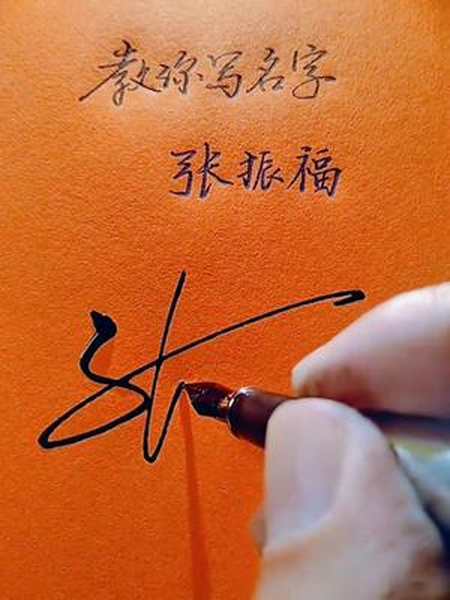 教你写名字
张振福
张